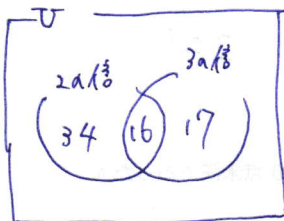 U
2の倍 3の倍
34 16 17